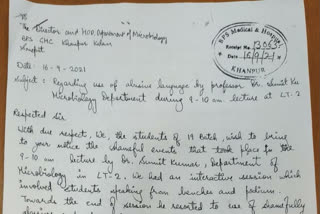 To
The Director and HOD, Department of Microbiology
BPS GMC Khanpur Kalan
Sonipat
BPS Medical & Hospital
Receipt No. 13063
16/9/21
KHANPUR
Date - 16-9-2021
Subject : Regarding use of abusive language by professor Dr. Sumit Kr
Microbiology Department during 9-10 am lecture at LT-2.
Respected Sir
With due respect, We, the students of 19 Batch wish to bring
to your notice the shameful events that took place in the
9-10 am lecture by Dr. Sumit Kumar, Department of
Microbiology in LT-2. We had an interactive session which
involved students speaking from benches and podium.
Towards the end of session he resorted to use of shamefully